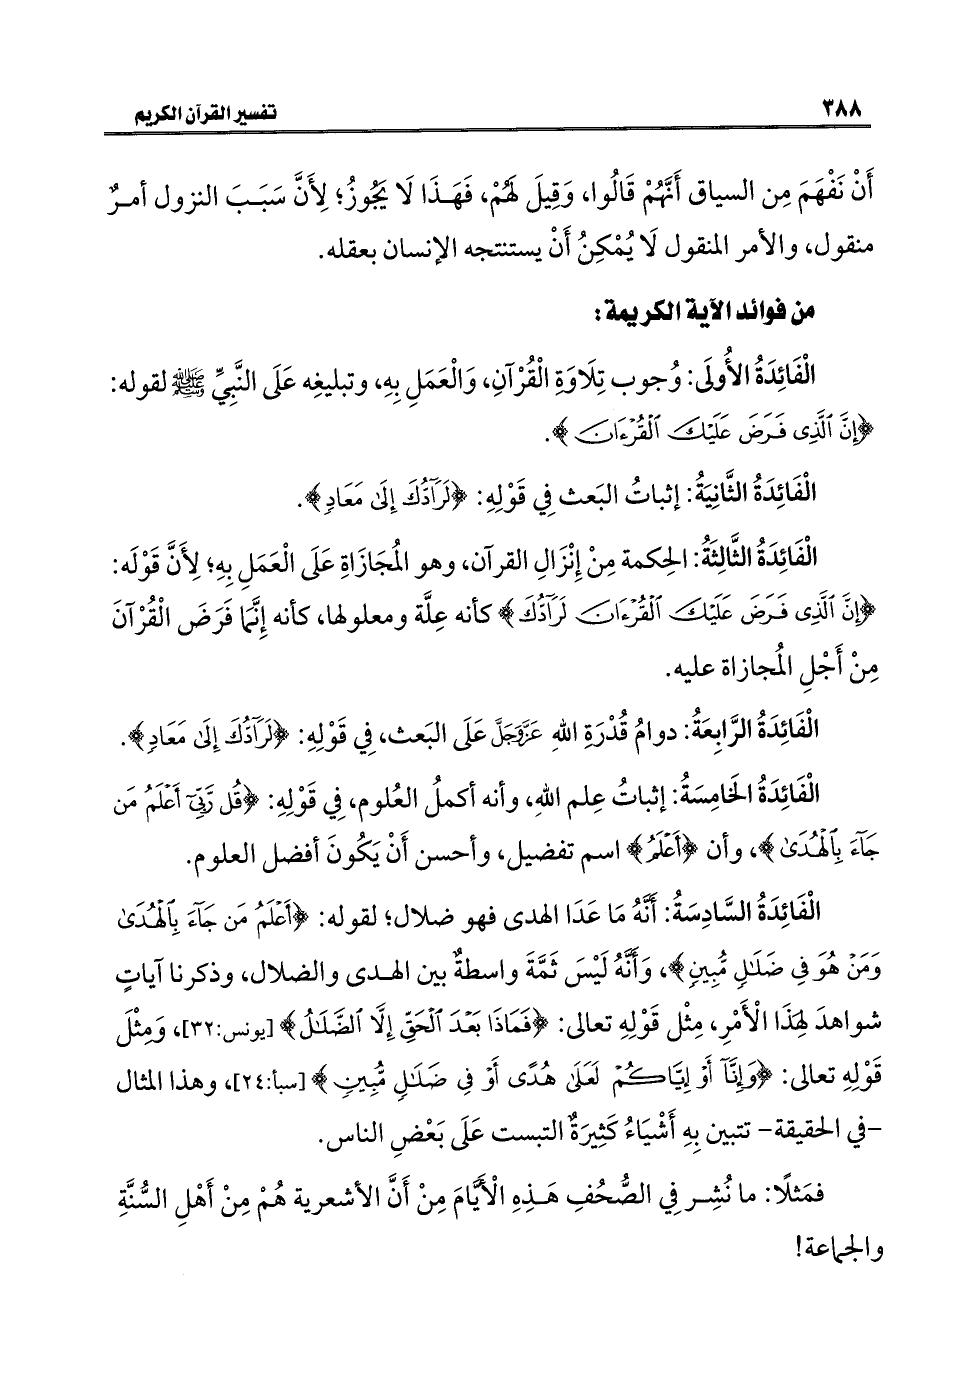 ٣٨٨
تفسير القرآن الكريم
أَنْ نَفْهَمَ مِن السياق أَنَّهُمْ قَالُوا، وَقِيلَ لَهُمْ، فَهَذَا لَا يَجُوزُ؛ لِأَنَّ سَبَبَ النزول أمرٌ
منقول، والأمر المنقول لَا يُمْكِنُ أَنْ يستنتجه الإنسان بعقله.
من فوائد الآية الكريمة:
الْفَائِدَةُ الأُولَى: وُجوب تِلَاوَةِ الْقُرْآنِ، وَالْعَمَلِ بِهِ، وتبليغِه عَلَى النَّبِيِّ ﷺ لقوله:
﴿إِنَّ ٱلَّذِى فَرَضَ عَلَيْكَ ٱلْقُرْءَانَ﴾.
الْفَائِدَةُ الثَّانِيَةُ: إثباتُ البَعث فِي قَوْلِهِ: ﴿لَرَآدُّكَ إِلَىٰ مَعَادٍ﴾.
الْفَائِدَةُ الثَّالِثَةُ: الحِكمة مِنْ إِنْزَالِ القرآن، وهو المُجَازَاةِ عَلَى الْعَمَلِ بِهِ؛ لِأَنَّ قَوْلَه:
﴿إِنَّ ٱلَّذِى فَرَضَ عَلَيْكَ ٱلْقُرْءَانَ لَرَآدُّكَ﴾ كأنه عِلَّة ومعلولها، كأنه إِنَّمَا فَرَضَ الْقُرْآنَ
مِنْ أَجْلِ المُجازاة عليه.
الْفَائِدَةُ الرَّابِعَةُ: دوامُ قُدْرَةِ اللهِ عَزَّوَجَلَّ عَلَى البَعث، فِي قَوْلِهِ: ﴿لَرَآدُّكَ إِلَىٰ مَعَادٍ﴾.
الْفَائِدَةُ الخَامِسَةُ: إثباتُ عِلم اللهِ، وأنه أكملُ العُلوم، فِي قَوْلِهِ: ﴿قُل رَّبِّىٓ أَعْلَمُ مَن
جَآءَ بِٱلْهُدَىٰ﴾، وأن ﴿أَعْلَمُ﴾ اسم تفضيل، وأحسن أَنْ يَكُونَ أفضل العلوم.
الْفَائِدَةُ السَّادِسَةُ: أَنَّهُ مَا عَدَا الهدى فهو ضلال؛ لقوله: ﴿أَعْلَمُ مَن جَآءَ بِٱلْهُدَىٰ
وَمَنْ هُوَ فِى ضَلَـٰلٍ مُّبِينٍ﴾، وَأَنَّهُ لَيْسَ ثَمَّةَ واسطةٌ بين الهدى والضلال، وذكرنا آياتٍ
شواهدَ لِهَذَا الْأَمْرِ، مِثْل قَوْلِهِ تعالى: ﴿فَمَاذَا بَعْدَ ٱلْحَقِّ إِلَّا ٱلضَّلَـٰلُ﴾ [يونس:٣٢]، وَمِثْلَ
قَوْلِهِ تعالى: ﴿وَإِنَّآ أَوْ إِيَّاكُمْ لَعَلَىٰ هُدًى أَوْ فِى ضَلَـٰلٍ مُّبِينٍ﴾ [سبأ:٢٤]، وهذا المثال
-في الحقيقة- تتبين بِهِ أَشْيَاءُ كَثِيرَةٌ التبست عَلَى بَعْضِ الناس.
فمَثلًا: ما نُشِر فِي الصُّحُفِ هَذِهِ الْأَيَّامَ مِنْ أَنَّ الأشعرية هُمْ مِنْ أَهْلِ السُّنَّةِ
والجماعة!